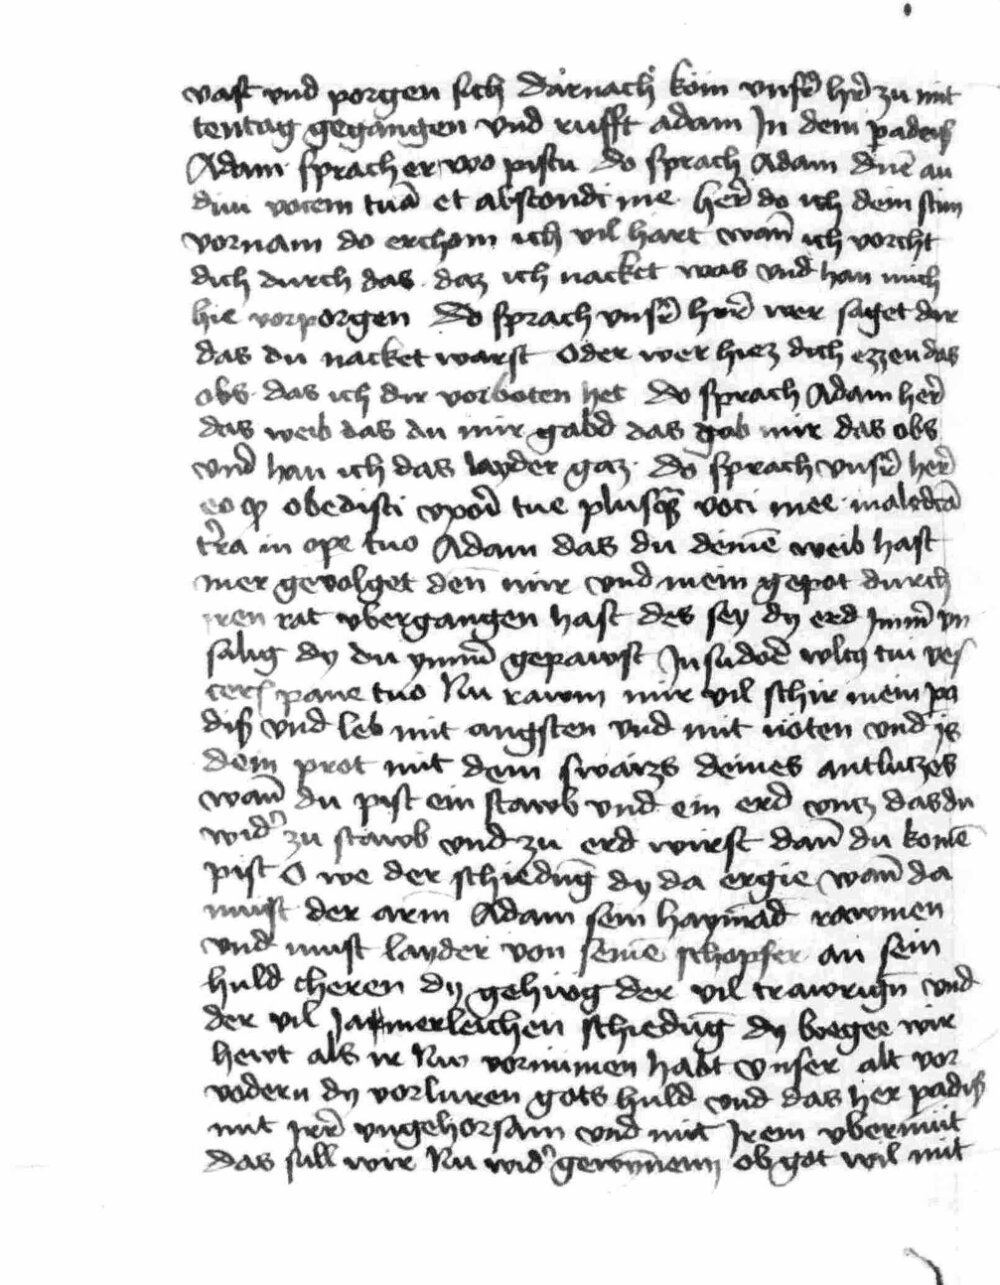 vast vnd porgen sich darnach kom vnsr̄ hr̄ zu mit
tentag gegangen vnd rufft adam In dem padeiß
Adam sprach er wo pistu do sprach Adam dn̄e au
diui vocem tuā et abscondi me her̄ do ich dein stim
vornam do erchom ich vil hart wan̄ ich vorcht
dich durch das daz ich nacket was vnd han mich
hie vorporgen Do sprach vnsr̄ herr̄ wer saget dir
das du nacket warst Oder wer hiez dich ezzen das
obs das ich dir vorboten het do sprach Adam her̄
das weib das du mir gabd das gab mir das obs
vnd han ich das layder gaz Do sprach vnsr̄ her̄
eo ꝙ obedisti vxori tue plusqᷓ voci mee maledcā
tr̄ra in ope tuo Adam das du deinē weib hast
mer gevolget den̄ mir vnd mein gepot durch
iren rat vbergangen hast des sey dy erd Imm̄ vn
salig dy du ymm̄ gepawst In sudoē wltꝯ tui ves
cers pane tuo Nu rawm mir vil schir mein pa
diß vnd leb mit angsten vnd mit nöten vnd is
dein prot mit dem swarzs deines antlutzes
wan̄ du pist ein stawb vnd ein erd vntz das du
wid̓ zu stawb vnd zu erd wirst dan̄ du komē
pist O we der schiedūg dy da ergie wan̄ da
must der arm̄ Adam sein haymād rawmen
vnd must layder von seinē schopfer an sein
huld cheren dy gehwg der vil trawrign̄ vnd
der vil Jamerleichen schiedūg dy begee wir
hewt als ir Nw vornumen habt Vnser alt vor
vodern dy vorluren gots huld vnd das her padiß
mit irr̄ vngehorsam vnd mit Irem vbermut
das sull wir Nu wid̓ gewyn̄enn ob got wil mit